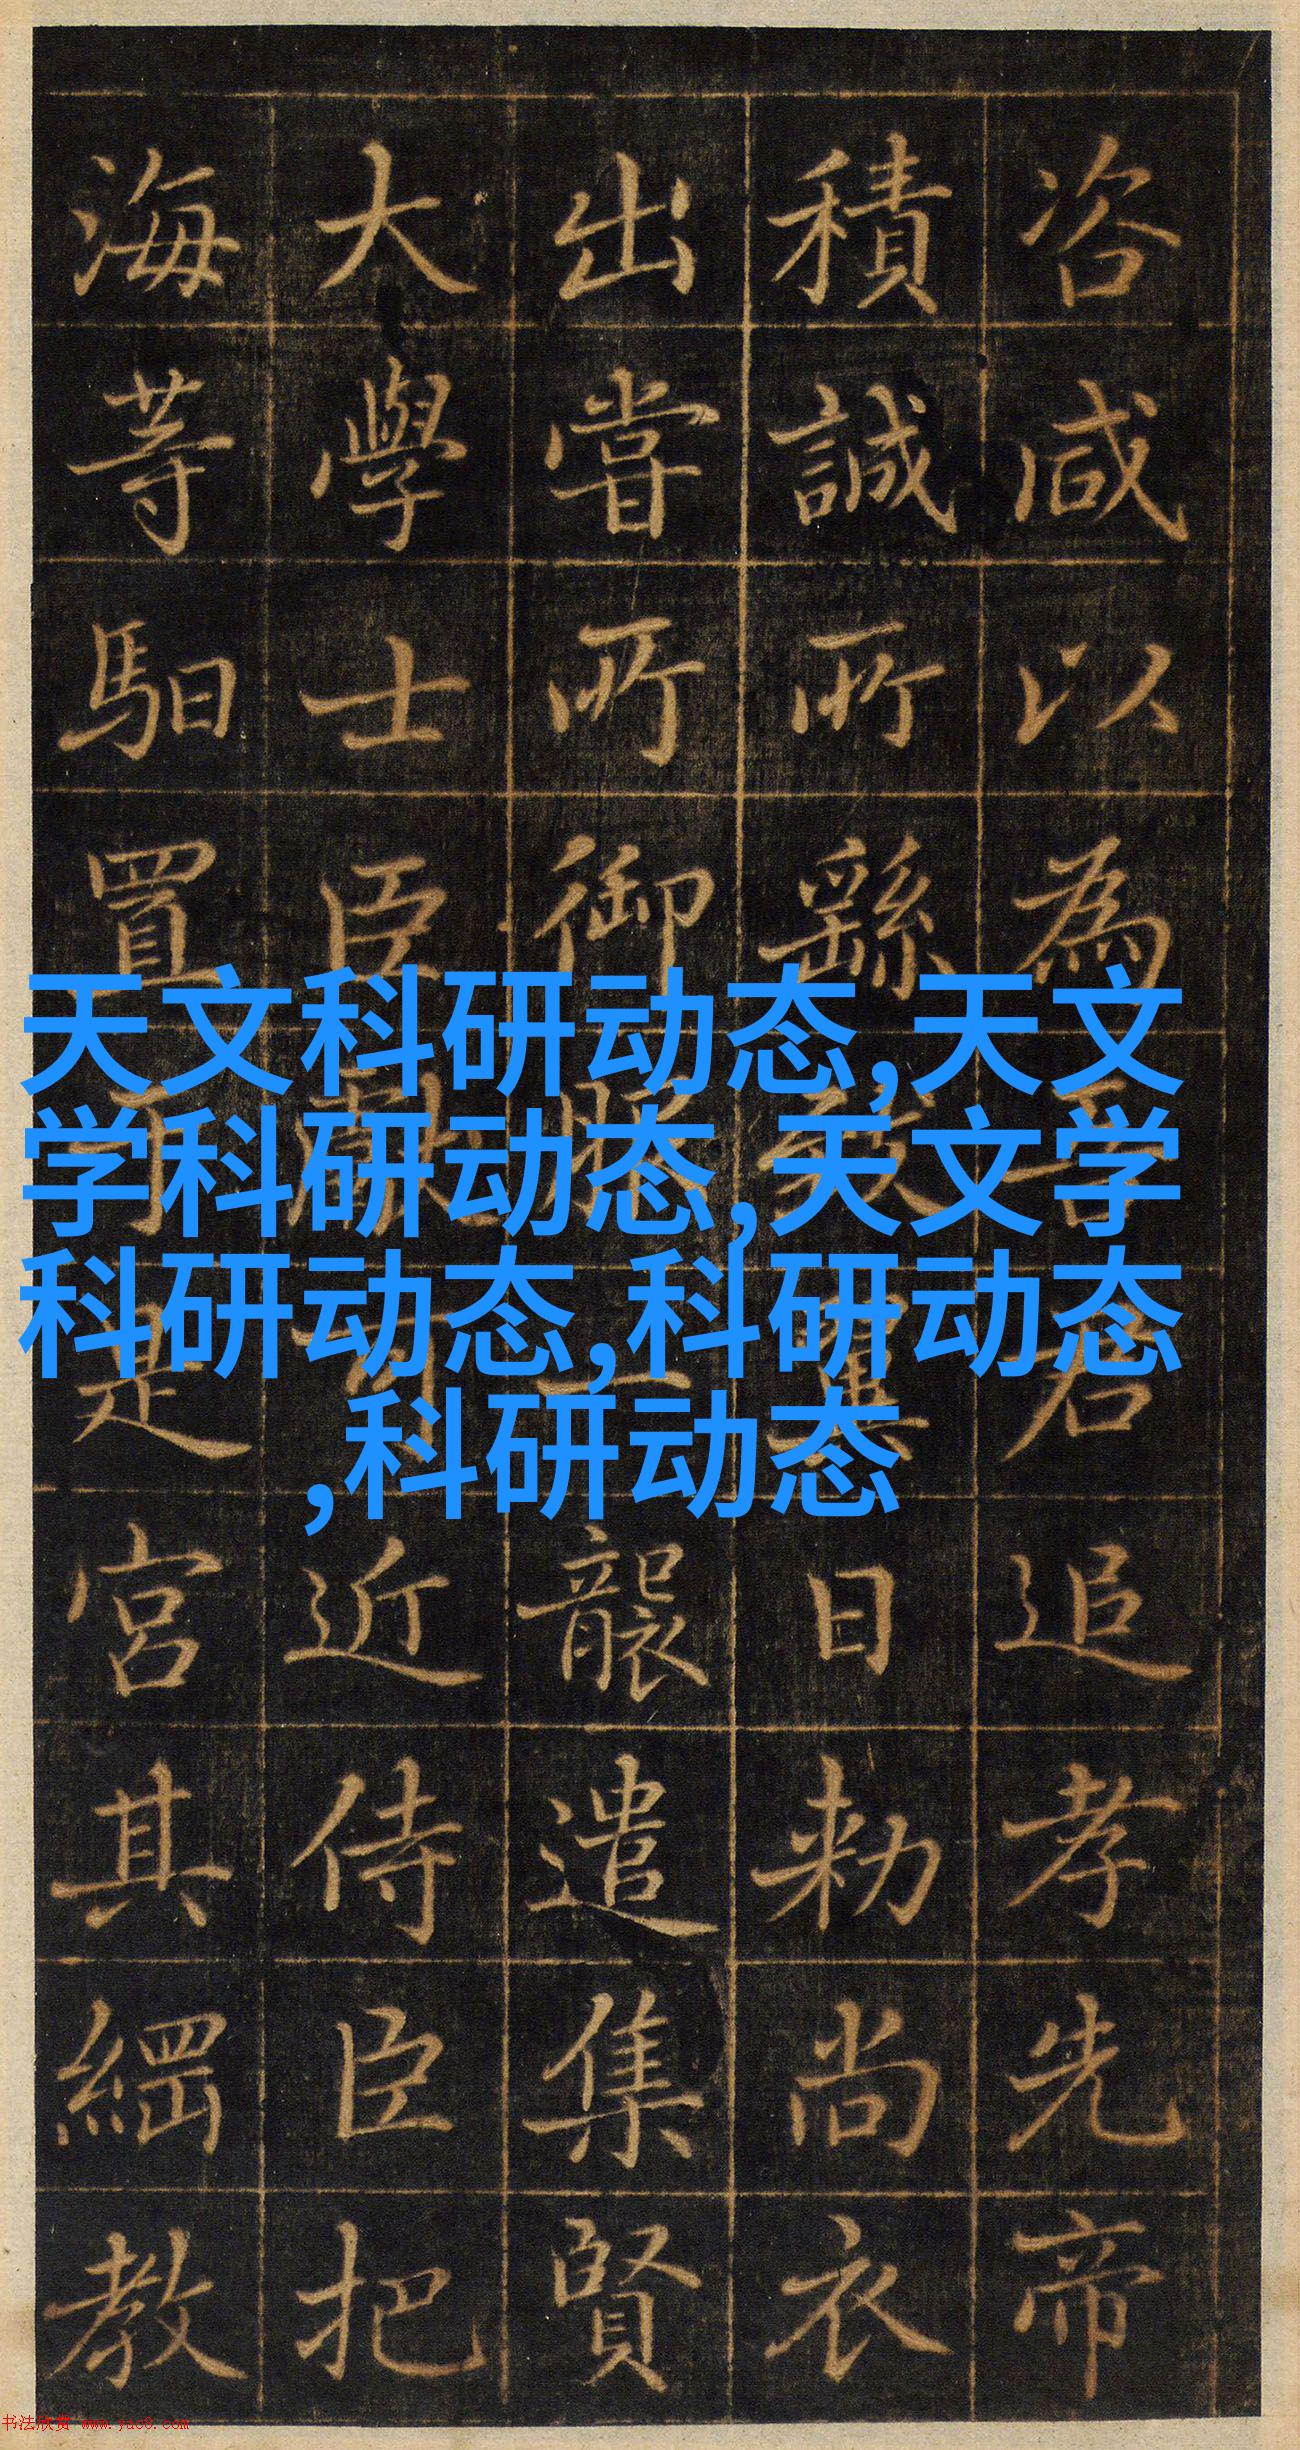 咨咸以為君追孝先帝
積誠所繇日勑尚衣
出嘗所御服一襲遣集賢
大學士臣近侍臣把
海等馹置是宮其綱教
天文科研动态,天文
学科研动态,天文学
科研动态,科研动态
,科研动态
书法欣赏 www.yac8.com